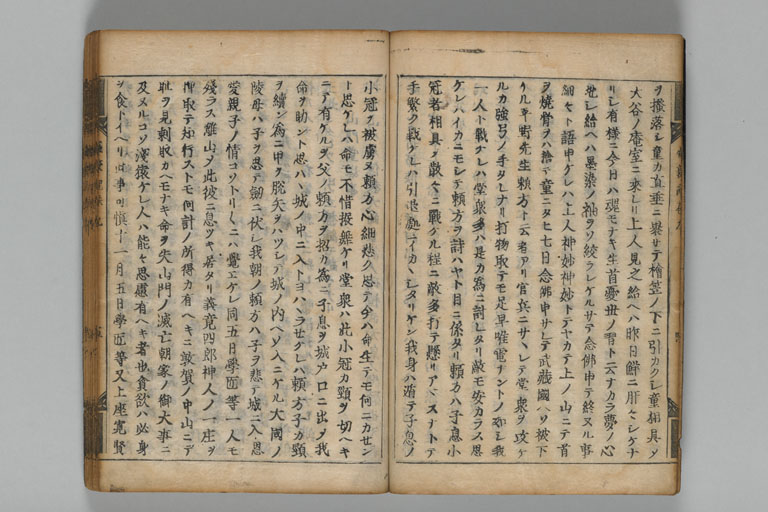 ヲ攙落シ童カ直垂ニ裹サテ檜笠ノ下ニ引カクシ童相具メ
大谷ノ庵室ニ来レリ上人見之給ヘハ昨日鮮ニ肝々シケナ
リシ有様ニ今日ハ魂モナキ生首憂世ノ習ト云ナカラ夢ノ心
地シ給ヘハ墨染ノ袖ヲソ絞ラレケルサテ念佛申テ終ヌル事
細々ト語申ケレハ上人神妙神妙トテヤカテ上ノ山ニテ首
ヲ燒骨ヲハ拾テ童ニタヒ七日念佛申サレテ武藏國ヘソ被下
ケル平野先生頼方ト云者アリ官兵ニサヽレテ堂衆ヲ攻ケ
ルカ強弓ノ手タレナリ打物取テモ足早唯電ナントノ如シ我
一人ト戰ケレハ堂衆多ハ是カ為ニ討レタリ敵モ安カラス思
ケレハイカニモシテ頼方ヲ討ハヤト目ニ係タリ頼方ハ子息小
冠者相具メ敵ニ戰ケル程ニ敵多打テ懸リアマスナトテ
手繁ク戰ケレハ引退處ニイカヽシタリケン我身ハ遁テ子息ノ
小冠ヲ被虜ヌ頼方心細悲ク思テ今ハ命生テモ何ニカセン
ト思ケレハ命モ不惜振舞ケリ堂衆ハ此小冠カ頸ヲ切ヘキ
ニテ有ケルヲ父ノ頼方ヲ招カ為ニ子息ヲ城戸口ニ出メ我
命ヲ助ント思ハヽ城ノ中ニ入トヨハヽラセケレハ頼方子カ頸
ヲ續ン為ニ甲ヲ脱矢ヲハツシテ城ノ内ヘソ入ニケル大國ノ
陵母ハ子ヲ思テ劔ニ伏シ我朝ノ頼方ハ子ヲ悲テ城ニ入恩
愛親子ノ情コソトリ〳〵ニハ覺エケレ同五日學匠等一人モ
殘ラス離山メ此彼ニ息ツキ居タリ義竟四郎神人ノ一庄ヲ
押取テ知行ストモ何計ノ所得カ有ヘキニ敦賀ノ中山ニテ
耻ヲ見剩取カヘモナキ命ヲ失山門ノ滅亡朝家ノ御大事ニ
及ヌルコソ淺猿ケレ人ハ能々思慮有ヘキ者也貪欲ハ必身
ヲ食トイヘリ可事可慎十一月五日學匠等又上座寛賢